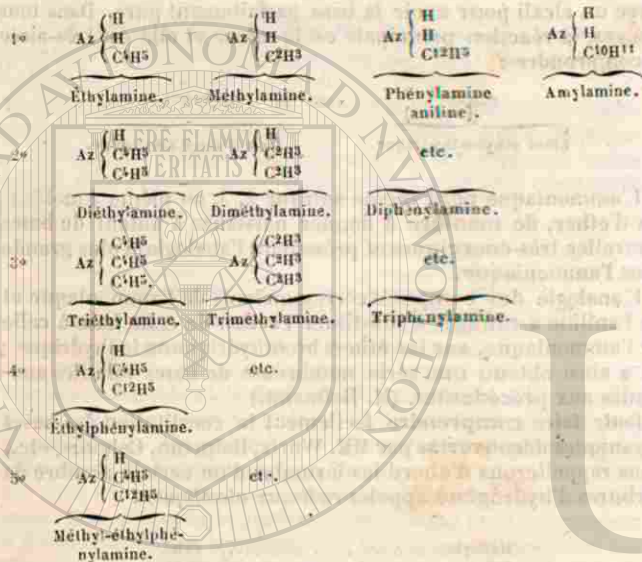 1º Az { H H C4H5 Az { H H C2H3 Az { H H C12H5 Az { H H C10H11
Éthylamine. Méthylamine. Phénylamine (aniline). Amylamine.
2º Az { H C4H5 C4H5 Az { H C2H3 C2H3 etc.
Diéthylamine. Diméthylamine. Diphénylamine.
3º Az { C4H5 C4H5 C4H5. Az { C2H3 C2H3 C2H3 etc.
Triéthylamine. Triméthylamine. Triphénylamine.
4º Az { H C4H5 C12H5 etc.
Éthylphénylamine.
5º Az { H C4H5 C12H5 etc.
Méthyl-éthylphé-
nylamine.
ALERE FLAMMAM
VERITATIS